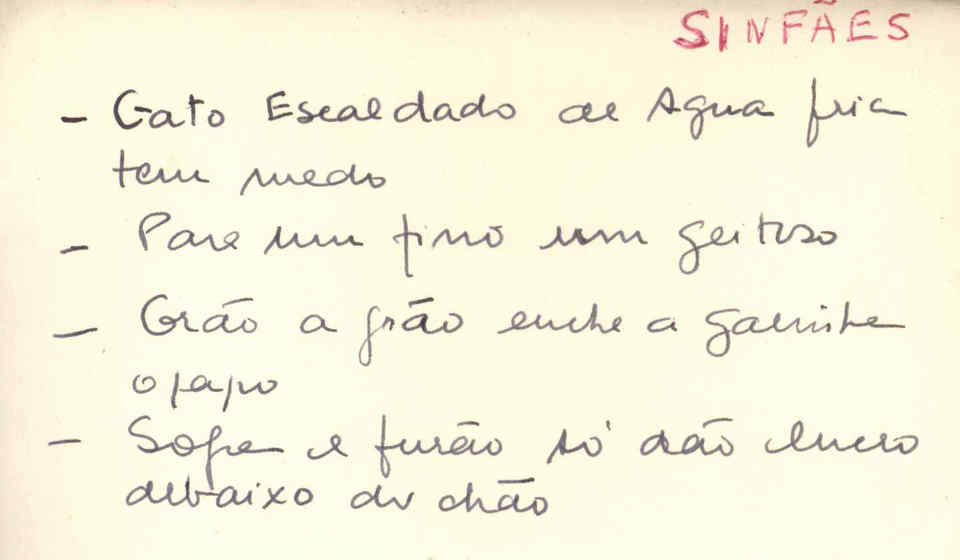 SINFÃES
- Gato Escaldado de Agua fria
tem medo
- Para um fino um geitoso
- Grão a grão enche a galinha
o papo
- e furão só dão lucro
debaixo do chão